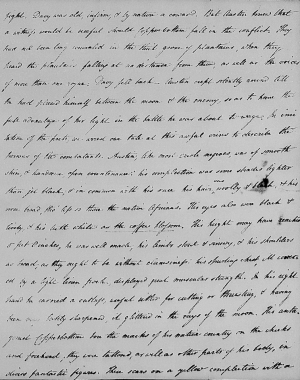 fight. Davy was old, infirm, & by nature a coward. But Austin knew that
a witness would be useful should Opperbottom fall in the conflict. They
had not been long concealed in the third grove of plantains, when they
heard the plantain falling at no distance from them, as well as the voices
of more than one negro. Davy fell back – Austin crept silently round till
he had placed himself between the moon & the enemy, so as to have the
full advantage of her light, in the battle he was about to wage. In imi
tation of the poets, we arrest our tale at this awful crisis to describe the
persons of the combatants. Austin, like most creole negroes was of smooth
skin, & handsome from countenance: his complexion was some shades lighter
than jet black, & in common with his race his hair, woolly & black, & his
nose broad. His lips less than the nation Africans. His eyes also were black &
lively; & his teeth white as the coffee blossom. His height may have reached
6 feet 2 inches, he was well made, his limbs thick & sinewy, & his shoulders
as broad, as they might be without clumsiness. his sparkling chest M cover
ed by a light linen frock, displayed great muscular strength. In his right
hand he carried a cutlass, useful either for cutting or thrusting, & having
been lately sharpened, it glittered in the rays of the moon. His anta
gonist Opperbottom bore the marks of his native country on the cheeks
and forehead, they were tattooed, as well as other parts of his body, in
divers fantastic figures. These scars on a yellow complexion with a